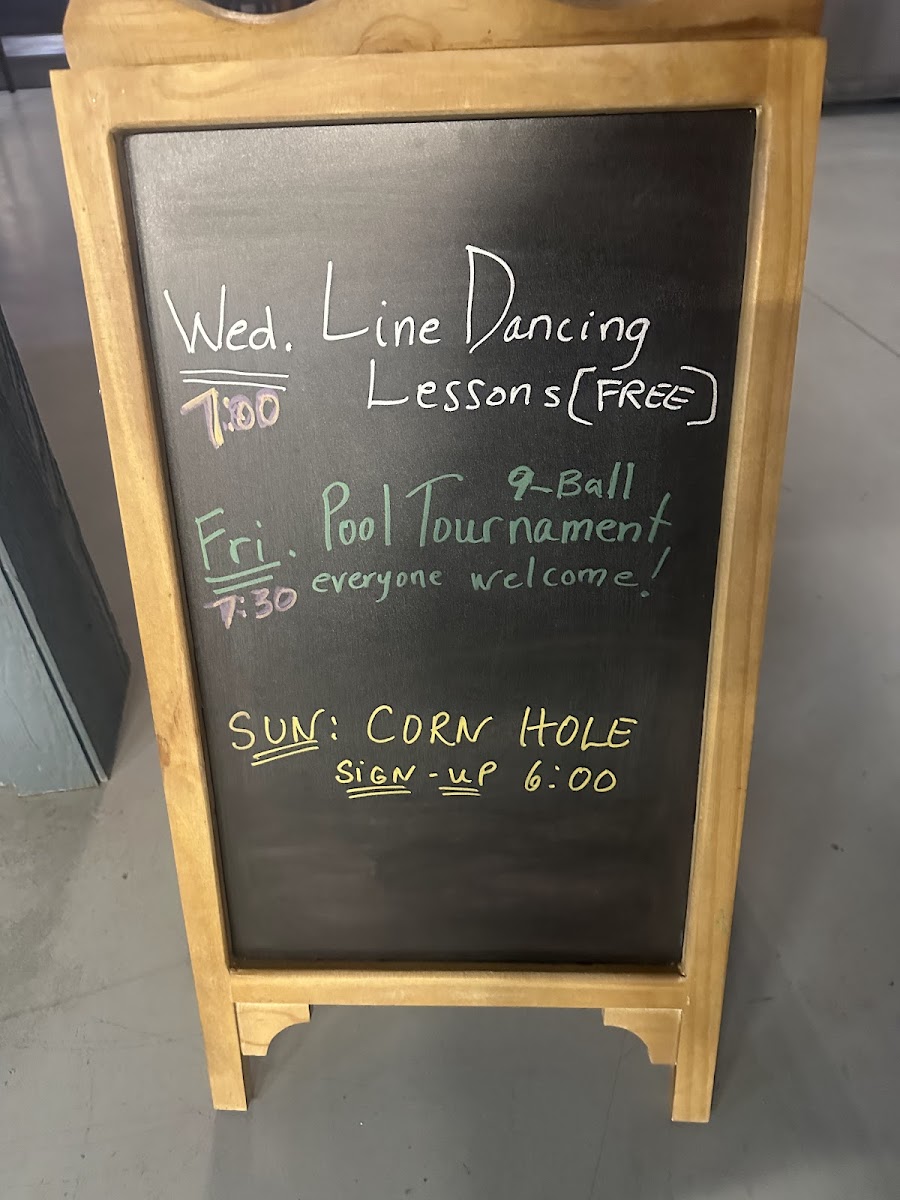 Wed. Line Dancing
Lessons [FREE]
7:00
9-Ball
Fri. Pool Tournament
everyone welcome!
7:30
SUN: CORN HOLE
SIGN-UP 6:00